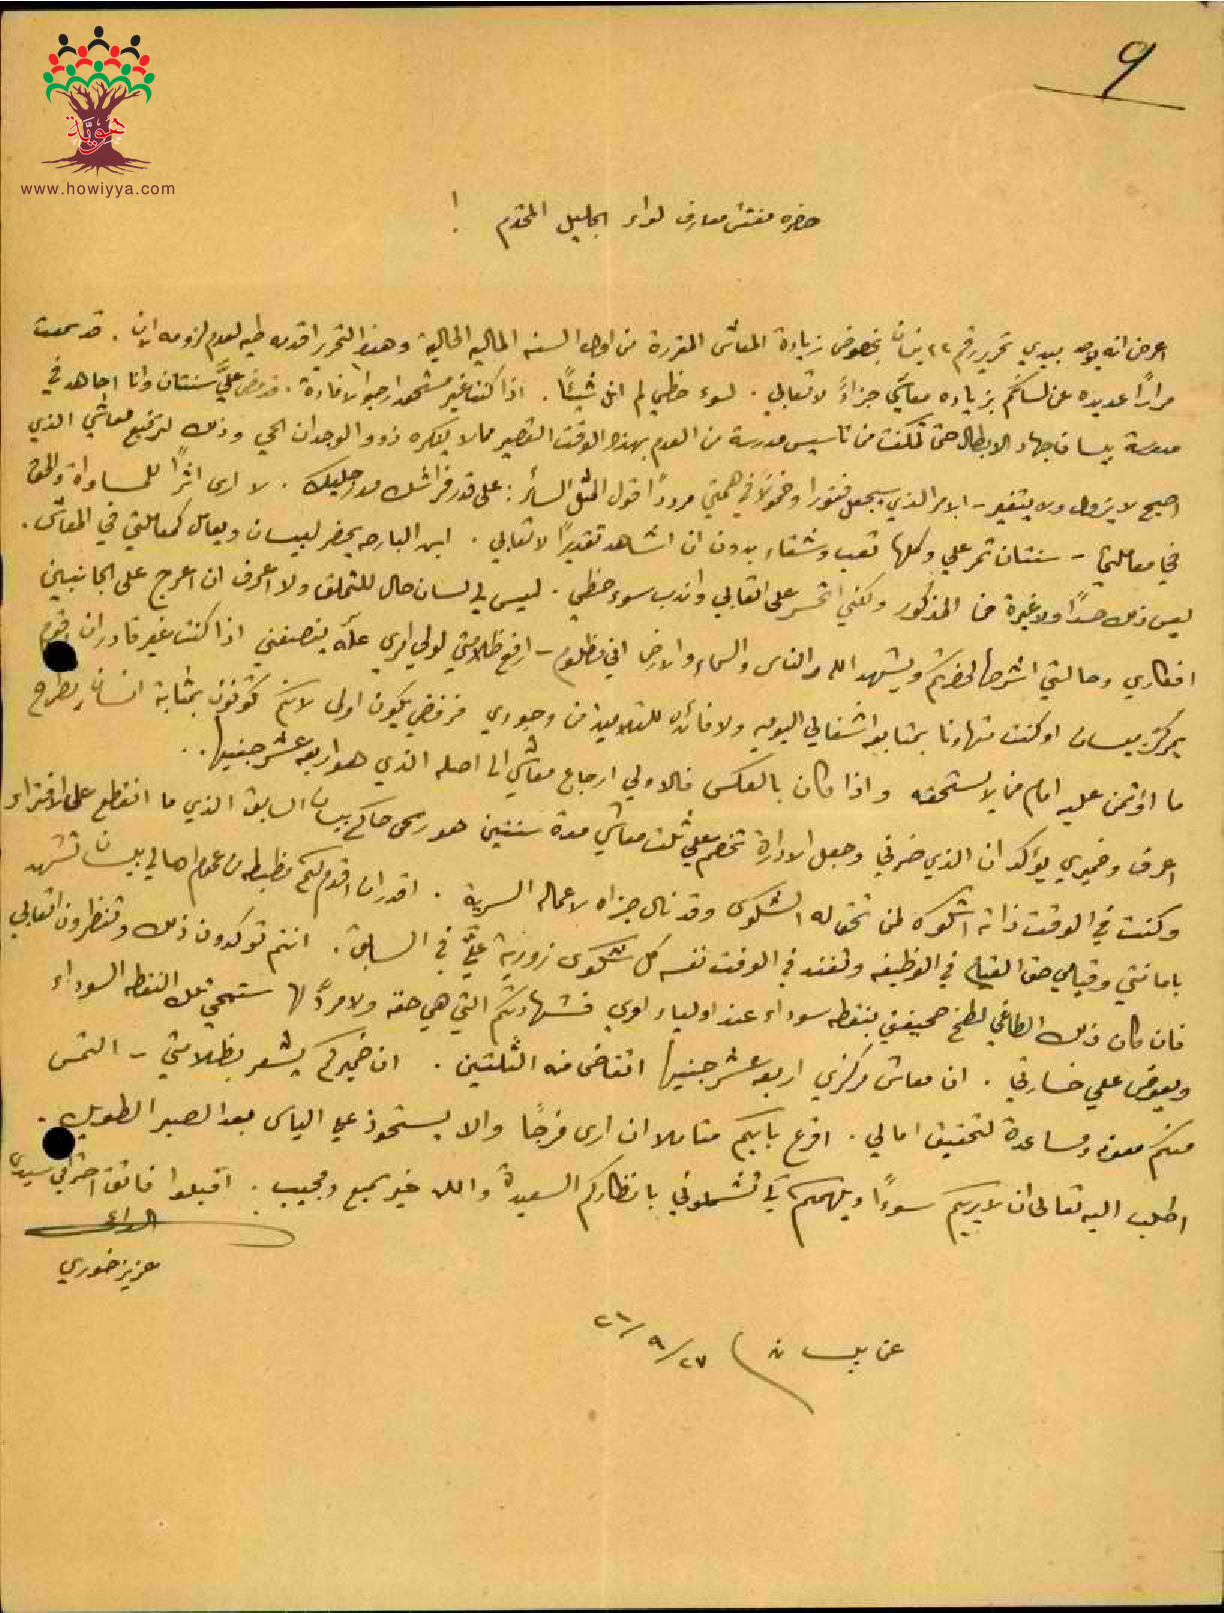 ٩
هوية
www.howiyya.com
حضرة مفتش معارف لواء الجليل المحترم !
اعرض انه يوجد بيدي تحرير رقم ٢٢ نيسان بخصوص زيادة المعاش المقررة من اول السنه الماليه الحالية وهذا التحرير اقدمه طيه لعدم لزومه الان . قد سمعت
مرارًا عديده من لسانكم بزياده معاشي جزاءً لاتعابي . لسوء حظي لم انل شيئًا . اذا كنت غير مستحق ارجو الافادة . قد مضى عليَّ سنتان وانا اجاهد في
مدرسة بيسان جهاد الابطال حتى تمكنت من تاسيس مدرسة من العدم بهذا الوقت القصير مما لا ينكره ذوو الوجدان الحي وذلك لترفيع معاشي الذي
اصبح لا يزول ولا يتغير - الامر الذي يجعل فتورا وخمولاً في همتي مرددًا قول المثل السائر : على قدر فراشك مد رجليك . لا ارى اثرًا للمساواة والحق
في معاملتي - سنتان تمر علي وكلها تعب وشقاء بدون ان اشاهد تقديرًا لاتعابي . ابن البارحه يحضر لبيسان ويعامل كمعاملتي في المعاش .
ليس ذلك حسدًا ولا غيرة من المذكور ولكني اتحسر على اتعابي واندب سوء حظي . ليس لي لسان حال للتملق ولا اعرف ان اعرج على الجانبين
افكاري وحالتي اشرحها لحضرتكم ويشهد الله والناس والسماء والارض اني مظلوم - ارفع ظلامتي لولي امري علّه ينصفني اذا كنت غير قادر ان اقوم
بمركز بيسان او كنت متهاونا بمتابعة اشغالي اليوميه ولا فائده للتلاميذ من وجودي فرفضي يكون اولى لانكم تكونون بمثابة انسان يطرح
ما اؤتمن عليه امام من لا يستحقه واذا كان بالعكس فالاولى ارجاع معاشي الى اصله الذي هو اربعة عشر جنيها ..
اعرف وضميري يؤكد ان الذي ضرني وجعل الادارة تخصم علي ثلث معاشي مدة سنتين هو حاكم بيسان السابق الذي ما انقطع على الافتراء
وكنت في الوقت ذاته اشكوه لمن تحق له الشكوى وقد نال جزاه لاعماله السرية . اقدر ان اقدم لكم مظبطه من عموم اهالي بيسان تشهد
بامانتي وقيامي حق القيام في الوظيفه وتفند في الوقت نفسه كل شكوى زورية عليَّ في السابق . انتم تؤكدون ذلك وتنظرون اتعابي
فان كان ذلك الطاغي لطخ صحيفتي بنقطه سوداء عند اولياء امري فشهادتكم التي هي حقه ولا مردّ لها ستمحي تلك النقطه السوداء
ويعوض علي خسارتي . ان معاش مركزي اربعة عشر جنيها اتقاضى منه الثلثين . ان ضميركم يشعر بظلامتي - التمس
منكم معونة ومساعدة لتحقيق امالي . اقرع بابكم متاملا ان ارى فرجًا والا يستحوذ علي الياس بعد الصبر الطويل .
اطلب اليه تعالى ان لا يريكم سوءًا ويلهمكم كي تشملوني بانظاركم السعيدة والله خير سميع ومجيب . اقبلوا فائق احترامي سيدي
الداعي
عزيز خوري
عن بيسان ٢٦/٩/٢٧